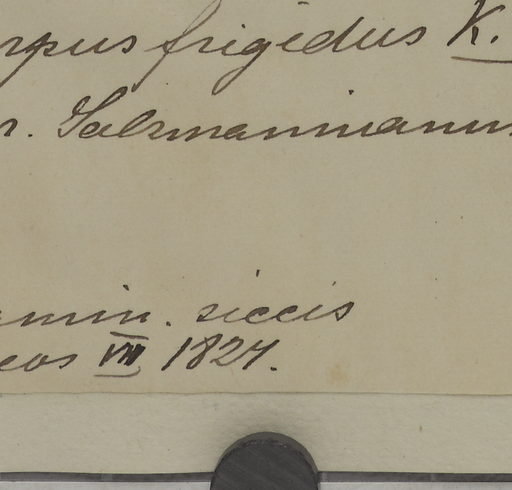 rpus frigidus K.
r. Salzmannianus
gramin. siccis
cos VII 1827.